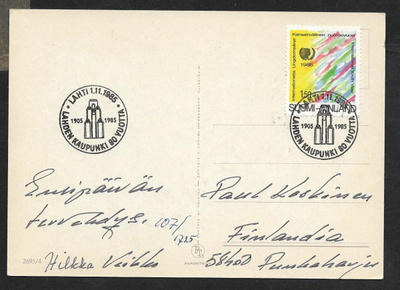 Kansainvälinen nuorisovuosi
1985
1,50
SUOMI-FINLAND
LAHTI 1.11.1985
1905 1985
LAHDEN KAUPUNKI 80 VUOTTA
LAHTI 1.11.1985
1905 1985
LAHDEN KAUPUNKI 80 VUOTTA
Ensipäivän
tervehdys. 107/
1725
Hilkka Veikko
Paul Koskinen
Finlandia
58450 Punkaharju
2695/4